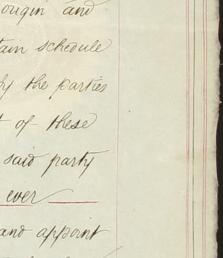 origin and
tain schedule
by the parties
t of these
said party
ever
and appoint